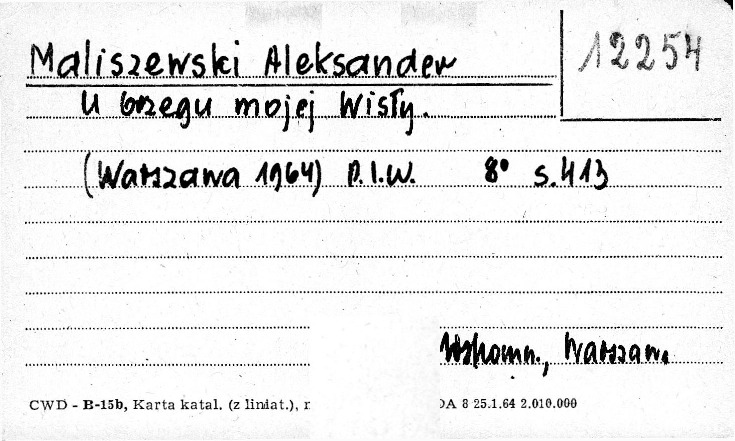 12254
Maliszewski Aleksander
U brzegu mojej Wisły.
(Warszawa 1964) P.I.W. 8° s. 413
Wspomn., Warszaw.
CWD - B-15b, Karta katal. (z liniat.), DA 8 25.1.64 2.010.000